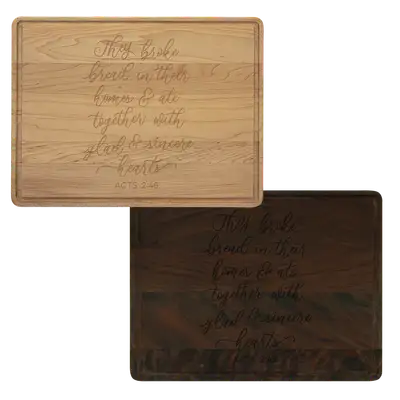 They broke
bread in their
homes & ate
together with
glad & sincere
hearts
ACTS 2:46
They broke
bread in their
homes & ate
together with
glad & sincere
hearts